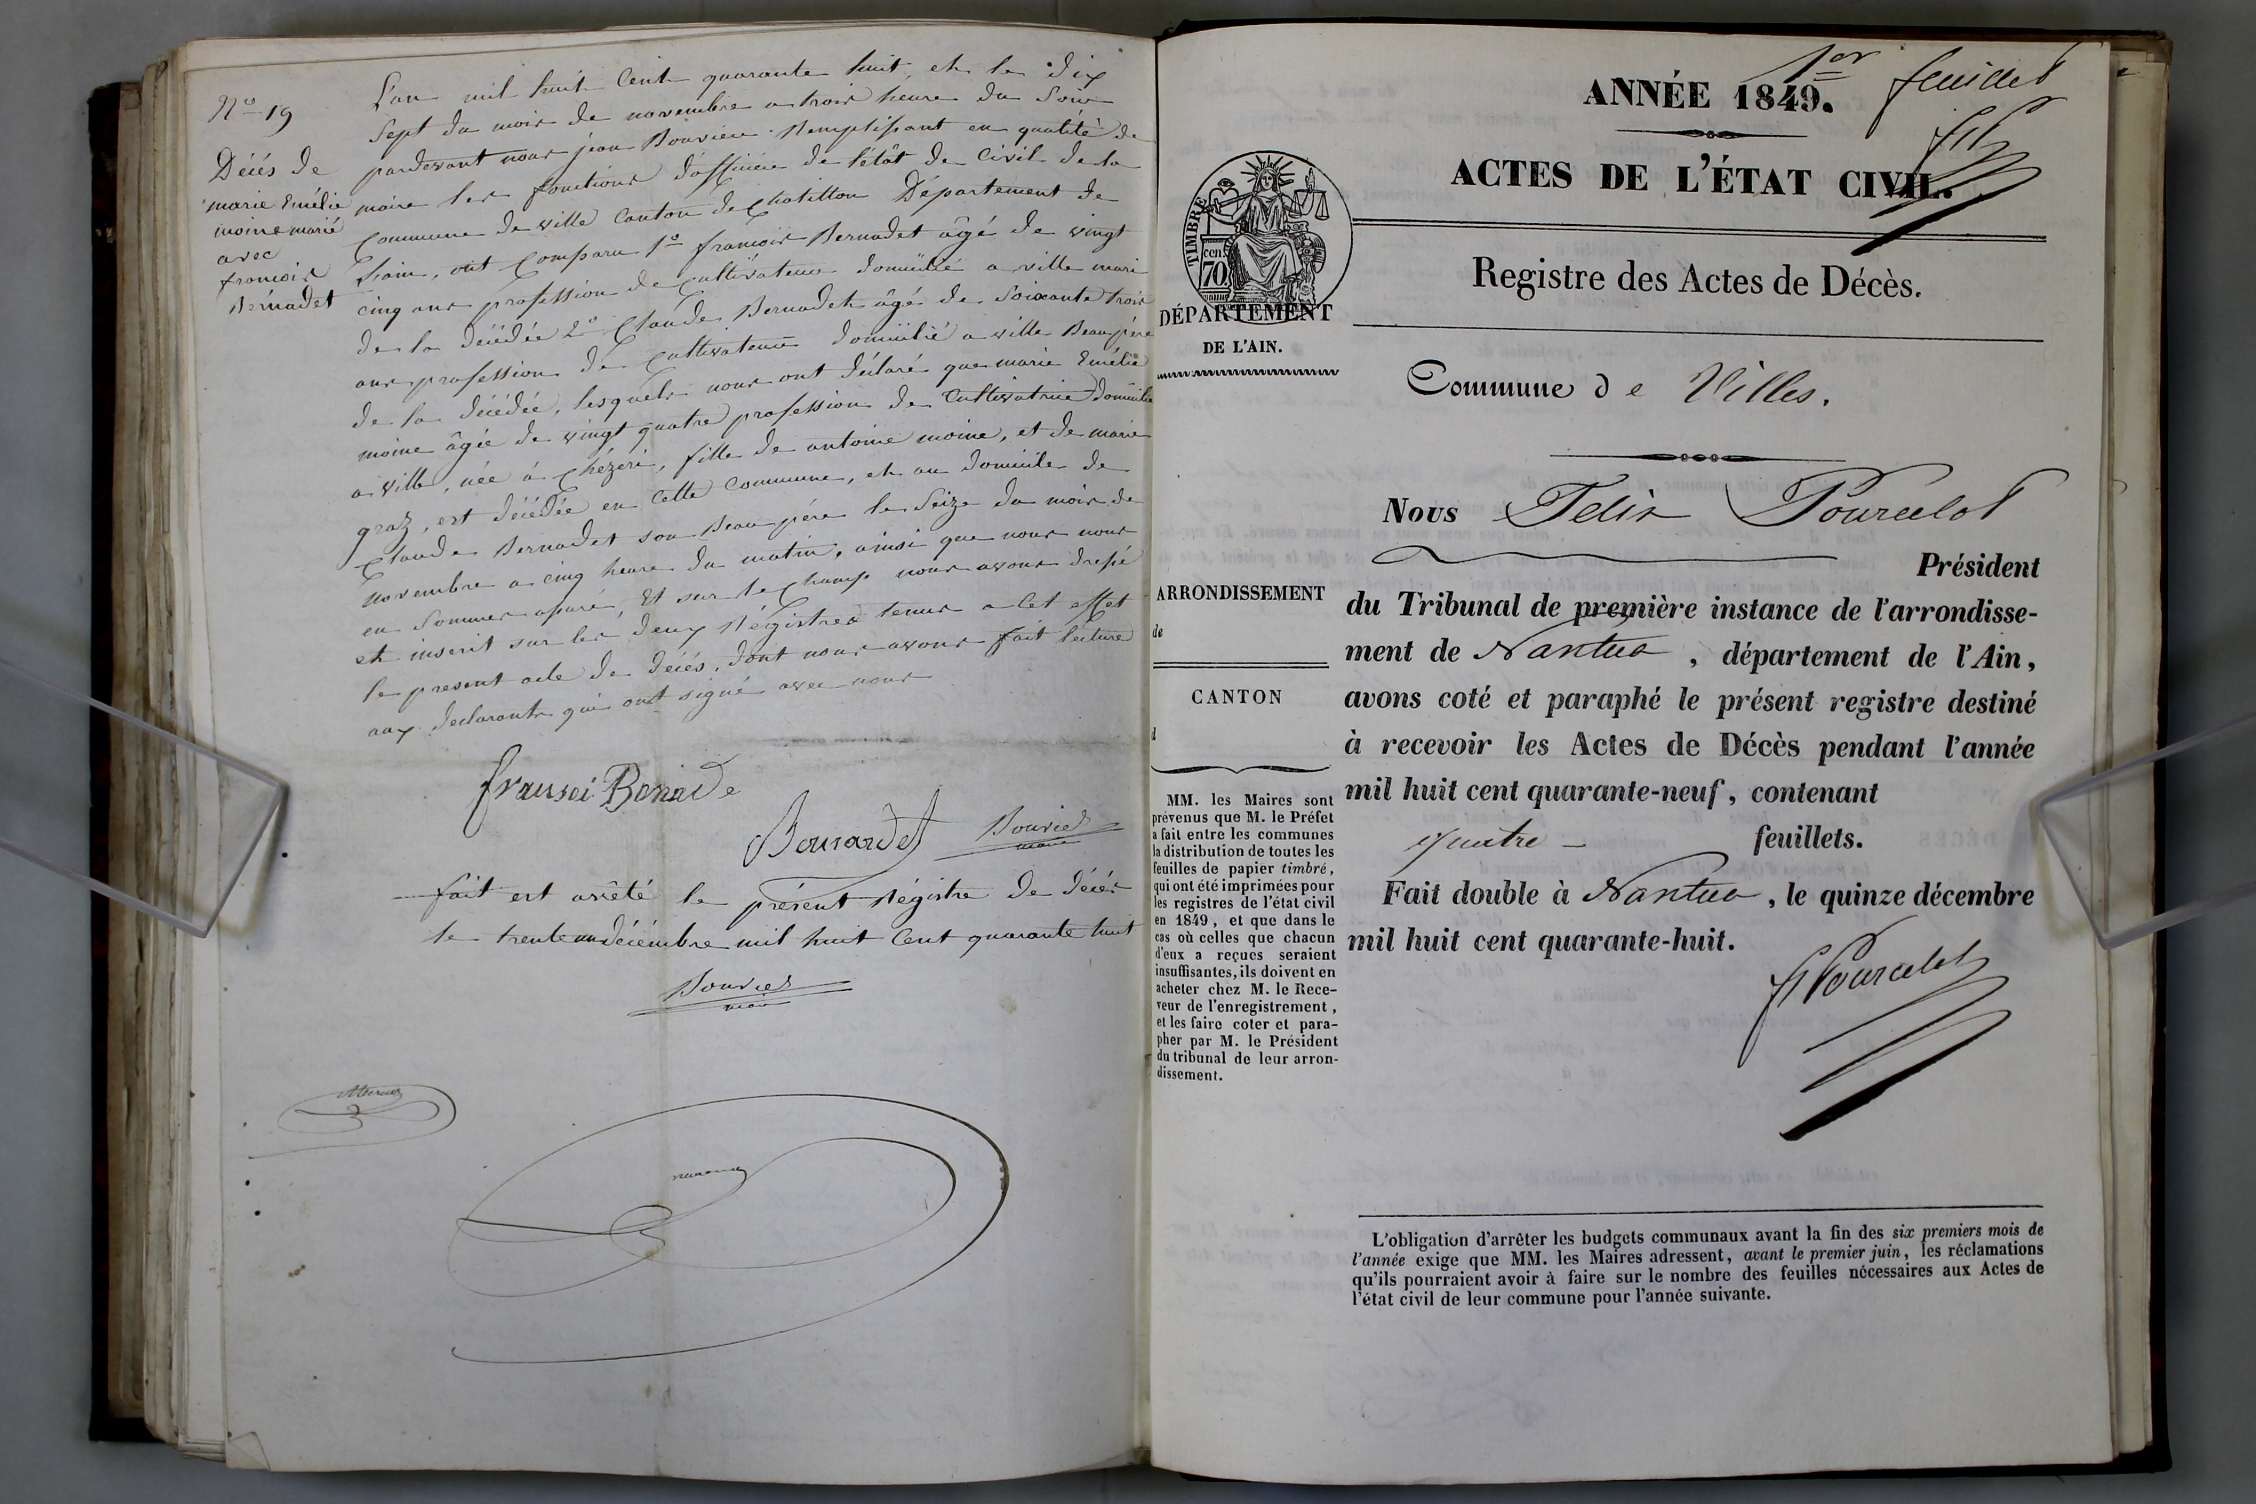 Nº 19
Décés de
marie Emélie
moine marié
avec
francois
Bernadet
L'an mil huit Cent quarante huit, et le dix
Sept du mois de novembre a trois heure du Soir
pardevant nous jean Bouvier Remplissant en qualité de
maire les fonctions d'officier de l'état de Civil de la
Commune de ville Canton de Chatillon Département de
L'ain, ont Comparu 1º francois Bernadet âgé de vingt
cinq ans profession de Cultivateur domicilié a ville mari
de la décédée 2º Claude Bernadet âgé de Soixante trois
ans profession de Cultivateur domicilié a ville Beau père
de la décédée, lesquels nous ont déclaré que marie Emélie
moine âgée de vingt quatre profession de Cultivatrice domicilié
a ville, née á Chézeri, fille de antoine moine, et de marie
graz, est décédée en Cette Commune, et au domicile de
Claude Bernadet son Beau père le Seize du mois de
novembre a cinq heure du matin, ainsi que nous nous
en Sommes assuré, Et sur le Champ nous avons dressé
et inscrit sur les deux Régistres tenus a Cet effet
le present acte de décés, dont nous avons fait lecture
aux declarants qui ont signé avec nous
Bouvier
maire
fait est arêté le présent Régistre de décés
le trente un décembre mil huit Cent quarante huit
Bouvier
maire
1er feuillet
ANNÉE 1849.
ACTES DE L'ÉTAT CIVIL.
TIMBRE
70 cen.
Registre des Actes de Décès.
DÉPARTEMENT
DE L'AIN.
Commune de Villes.
Nous Felix Pourcelot
Président
du Tribunal de première instance de l'arrondisse-
ment de Nantua, département de l'Ain,
avons coté et paraphé le présent registre destiné
à recevoir les Actes de Décès pendant l'année
mil huit cent quarante-neuf, contenant
quatre feuillets.
Fait double à Nantua, le quinze décembre
mil huit cent quarante-huit.
Pourcelot
ARRONDISSEMENT
de
CANTON
d
MM. les Maires sont
prévenus que M. le Préfet
a fait entre les communes
la distribution de toutes les
feuilles de papier timbré,
qui ont été imprimées pour
les registres de l'état civil
en 1849, et que dans le
cas où celles que chacun
d'eux a reçues seraient
insuffisantes, ils doivent en
acheter chez M. le Rece-
veur de l'enregistrement,
et les faire coter et para-
pher par M. le Président
du tribunal de leur arron-
dissement.
L'obligation d'arrêter les budgets communaux avant la fin des six premiers mois de
l'année exige que MM. les Maires adressent, avant le premier juin, les réclamations
qu'ils pourraient avoir à faire sur le nombre des feuilles nécessaires aux Actes de
l'état civil de leur commune pour l'année suivante.